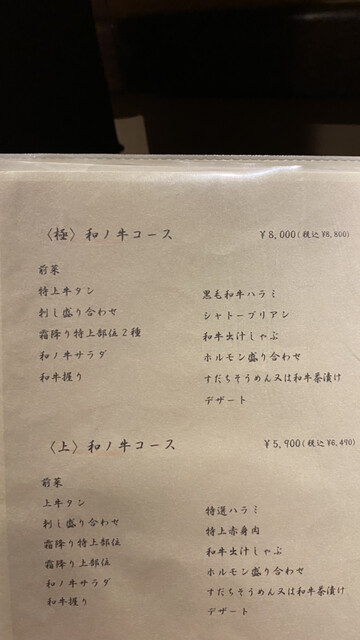 〈極〉和ノ牛コース ￥8,000(税込￥8,800)
前菜
特上牛タン
刺し盛り合わせ
霜降り特上部位２種
和ノ牛サラダ
和牛握り
黒毛和牛ハラミ
シャトーブリアン
和牛出汁しゃぶ
ホルモン盛り合わせ
すだちそうめん又は和牛茶漬け
デザート
〈上〉和ノ牛コース ￥5,900(税込￥6,490)
前菜
上牛タン
刺し盛り合わせ
霜降り特上部位
霜降り上部位
和ノ牛サラダ
和牛握り
特選ハラミ
特上赤身肉
和牛出汁しゃぶ
ホルモン盛り合わせ
すだちそうめん又は和牛茶漬け
デザート